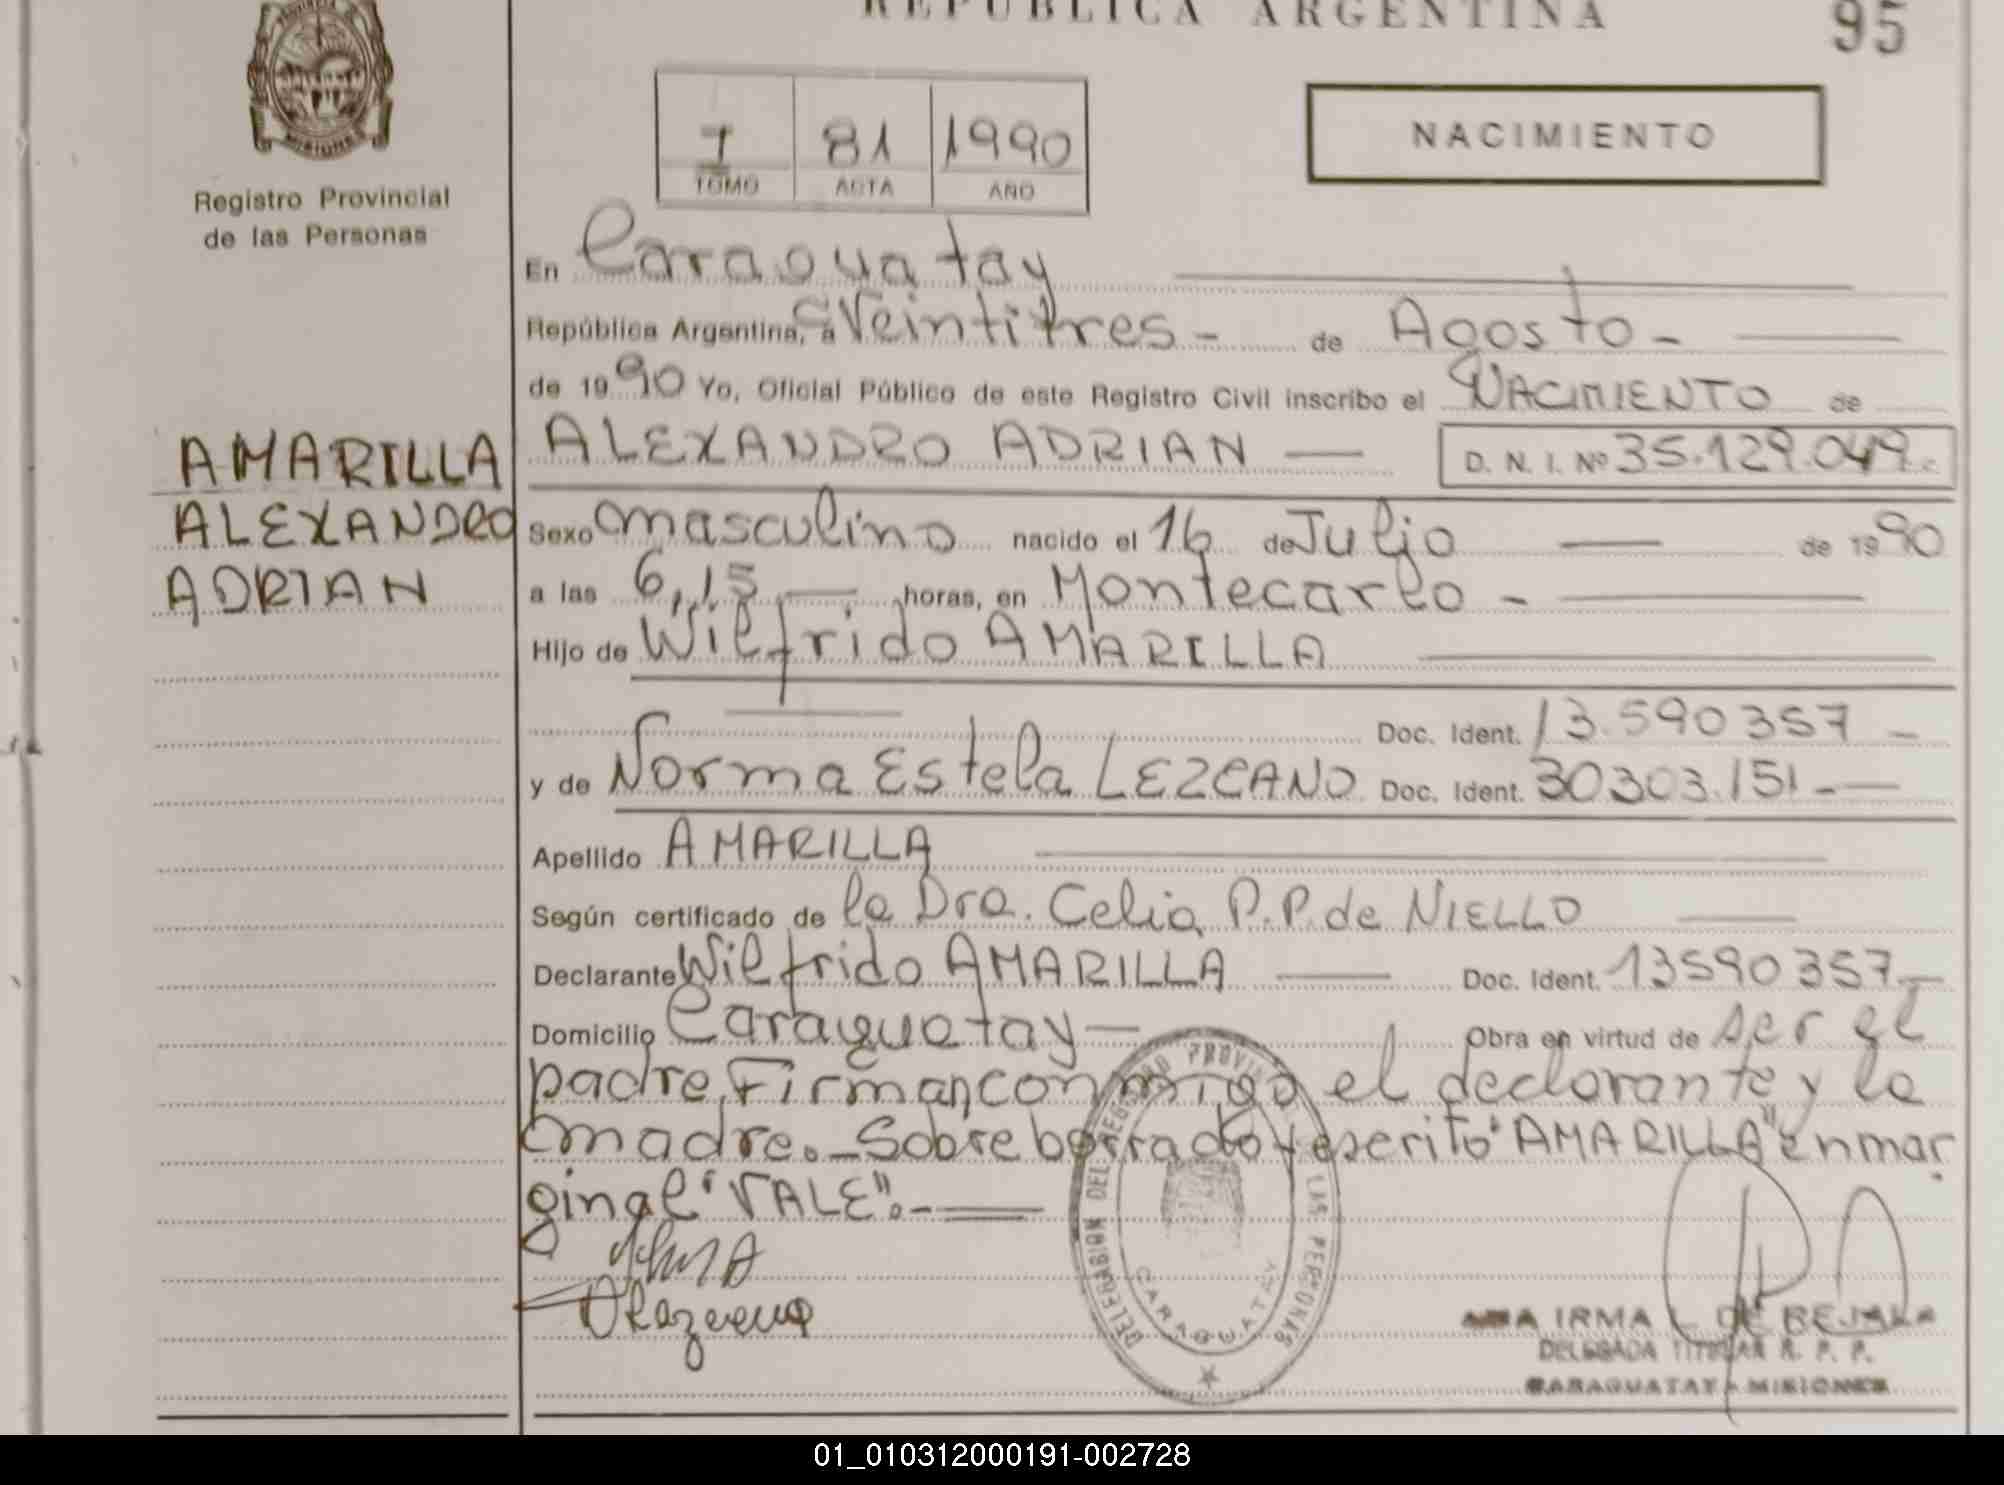 REPUBLICA ARGENTINA
95
MISIONES
Registro Provincial
de las Personas
7 81 1990
TOMO ACTA AÑO
NACIMIENTO
En Caraguatay
República Argentina, a Veintitres - de Agosto -
de 1990 Yo, Oficial Público de este Registro Civil inscribo el NACIMIENTO de
AMARILLA
ALEXANDRO
ADRIAN
ALEXANDRO ADRIAN D. N. I. Nº 35.129.049.
Sexo masculino nacido el 16 de Julio de 1990
a las 6,15 horas, en Montecarlo -
Hijo de Wilfrido AMARILLA
Doc. Ident. 13.590357 -
y de Norma Estela LEZCANO Doc. Ident. 30303.151 -
Apellido AMARILLA
Según certificado de la Dra. Celia P.P. de NIELLO
Declarante Wilfrido AMARILLA Doc. Ident. 13590357 -
Domicilio Caraguatay Obra en virtud de ser el
padre, Firman conmigo el declarante y la
madre. - Sobre borrado y escrito "AMARILLA" en mar
ginal "VALE". -
DELEGACION DEL REGISTRO PROVINCIAL DE LAS PERSONAS
CARAGUATAY
ANA IRMA L. DE BEJALA
DELEGADA TITULAR R. P. P.
CARAGUATAY - MISIONES
01_010312000191-002728